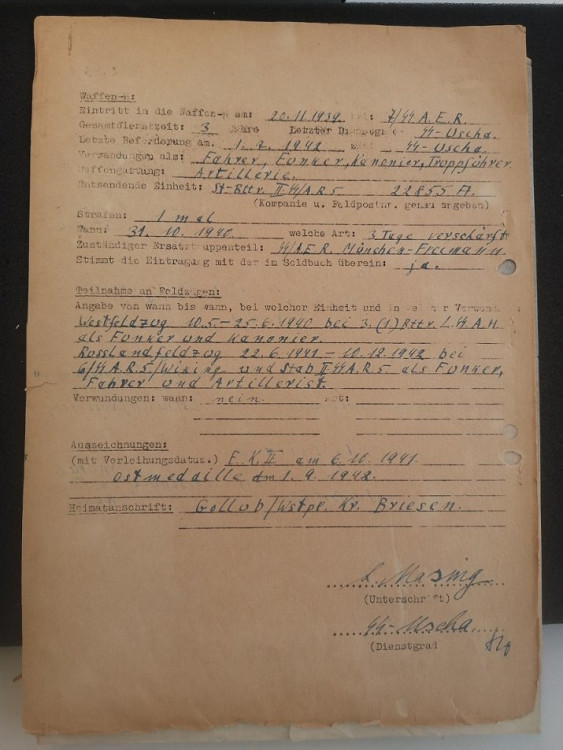 Waffen-ϟϟ:
Eintritt in die Waffen-ϟϟ am: 20.11.1939 bei: 7/ϟϟ A.E.R.
Gesamtdienstzeit: 3 Jahre Letzter Dienstgrad ϟϟ-Uscha.
Letzte Beförderung am. 1.2.1942 ϟϟ-Uscha.
Verwendungen als: Fahrer, Funker, Kanonier, Truppführer
Waffengattung: Artillerie.
Entsendende Einheit: St-Bttr. II ϟϟ A.R 5 22855 A.
(Kompanie u. Feldpostnr. genau angeben)
Strafen: 1 mal
Wann: 31.10.1940 welche Art: 3 Tage verschärft
Zuständiger Ersatztruppenteil: ϟϟ A.E.R. München-Freimann.
Stimmt die Eintragung mit der im Soldbuch überein: ja.
Teilnahme an Feldzügen:
Angabe von wann bis wann, bei welcher Einheit und in welcher Verwend
Westfeldzug 10.5 - 25.6.1940 bei 3.(1) Bttr. L.H.A.H
als Funker und Kanonier.
Russlandfeldzug 22.6.1941 - 10.12.1942 bei
6/ϟϟ A.R.5/Wiking und Stab II ϟϟ A.R.5 als Funker,
Fahrer und Artillerist.
Verwundungen: wann: nein. Art:
Auszeichnungen:
(mit Verleihungsdatum.) E.K. II am 6.10.1941.
Ostmedaille am 1.9.1942.
Heimatanschrift: Gollub/Wstpr. Kr. Briesen.
Masing
(Unterschrift)
ϟϟ-Uscha
(Dienstgrad